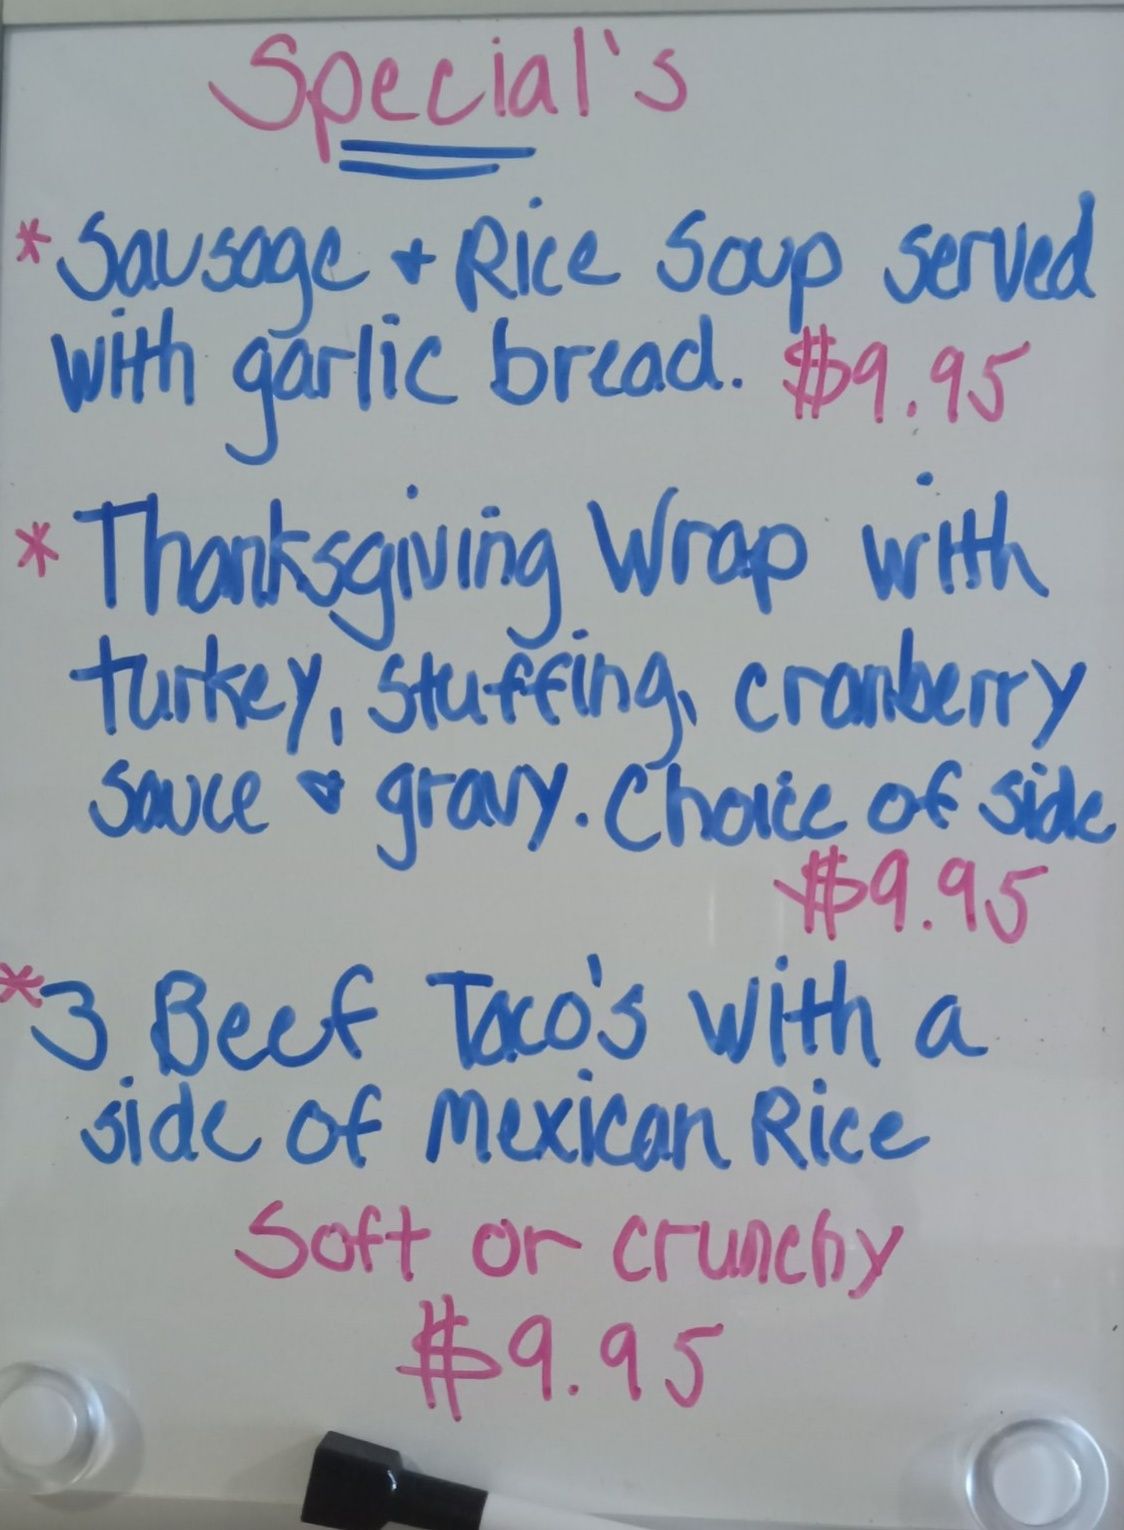 Special's
* Sausage + Rice Soup served
with garlic bread. $9.95
* Thanksgiving Wrap with
turkey, stuffing, cranberry
sauce + gravy. Choice of side
$9.95
* 3 Beef Taco's with a
side of Mexican Rice
Soft or crunchy
$9.95